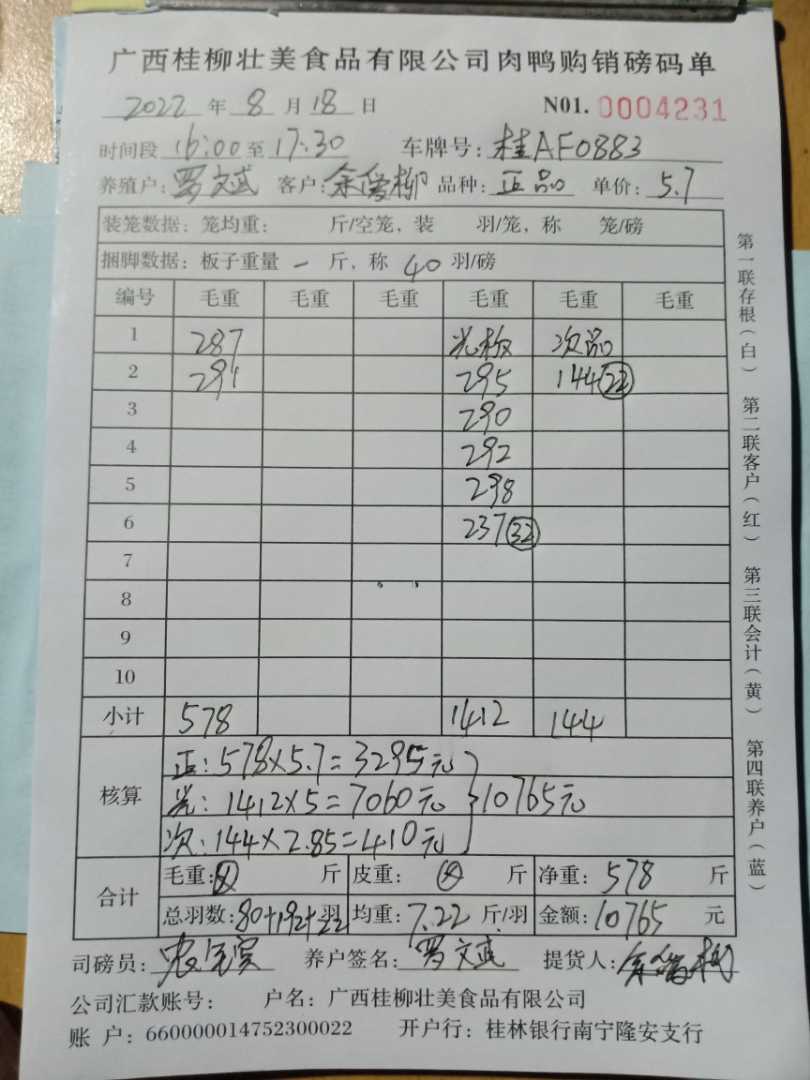 广西桂柳壮美食品有限公司肉鸭购销磅码单
2022 年 8 月 18 日 N01. 0004231
时间段 16:00 至 17:30 车牌号: 桂AF0883
养殖户: 罗文斌 客户: 余俊柳 品种: 正品 单价: 5.7
装笼数据: 笼均重: 斤/空笼, 装 羽/笼, 称 笼/磅
捆脚数据: 板子重量 一 斤, 称 40 羽/磅
编号 毛重 毛重 毛重 毛重 毛重 毛重
1 287 光板 次品
2 291 295 144 22
3 290
4 292
5 298
6 237 32
7
8
9
10
小计 578 1412 144
核算 正: 578×5.7=3295元
光: 1412×5=7060元 } 10765元
次: 144×2.85=410元
合计 毛重: 斤 皮重: 斤 净重: 578 斤
总羽数: 80+192+22 羽 均重: 7.22 斤/羽 金额: 10765 元
司磅员: 养户签名: 罗文斌 提货人: 余俊柳
公司汇款账号: 户名: 广西桂柳壮美食品有限公司
账 户: 660000014752300022 开户行: 桂林银行南宁隆安支行
第一联存根(白) 第二联客户(红) 第三联会计(黄) 第四联养户(蓝)